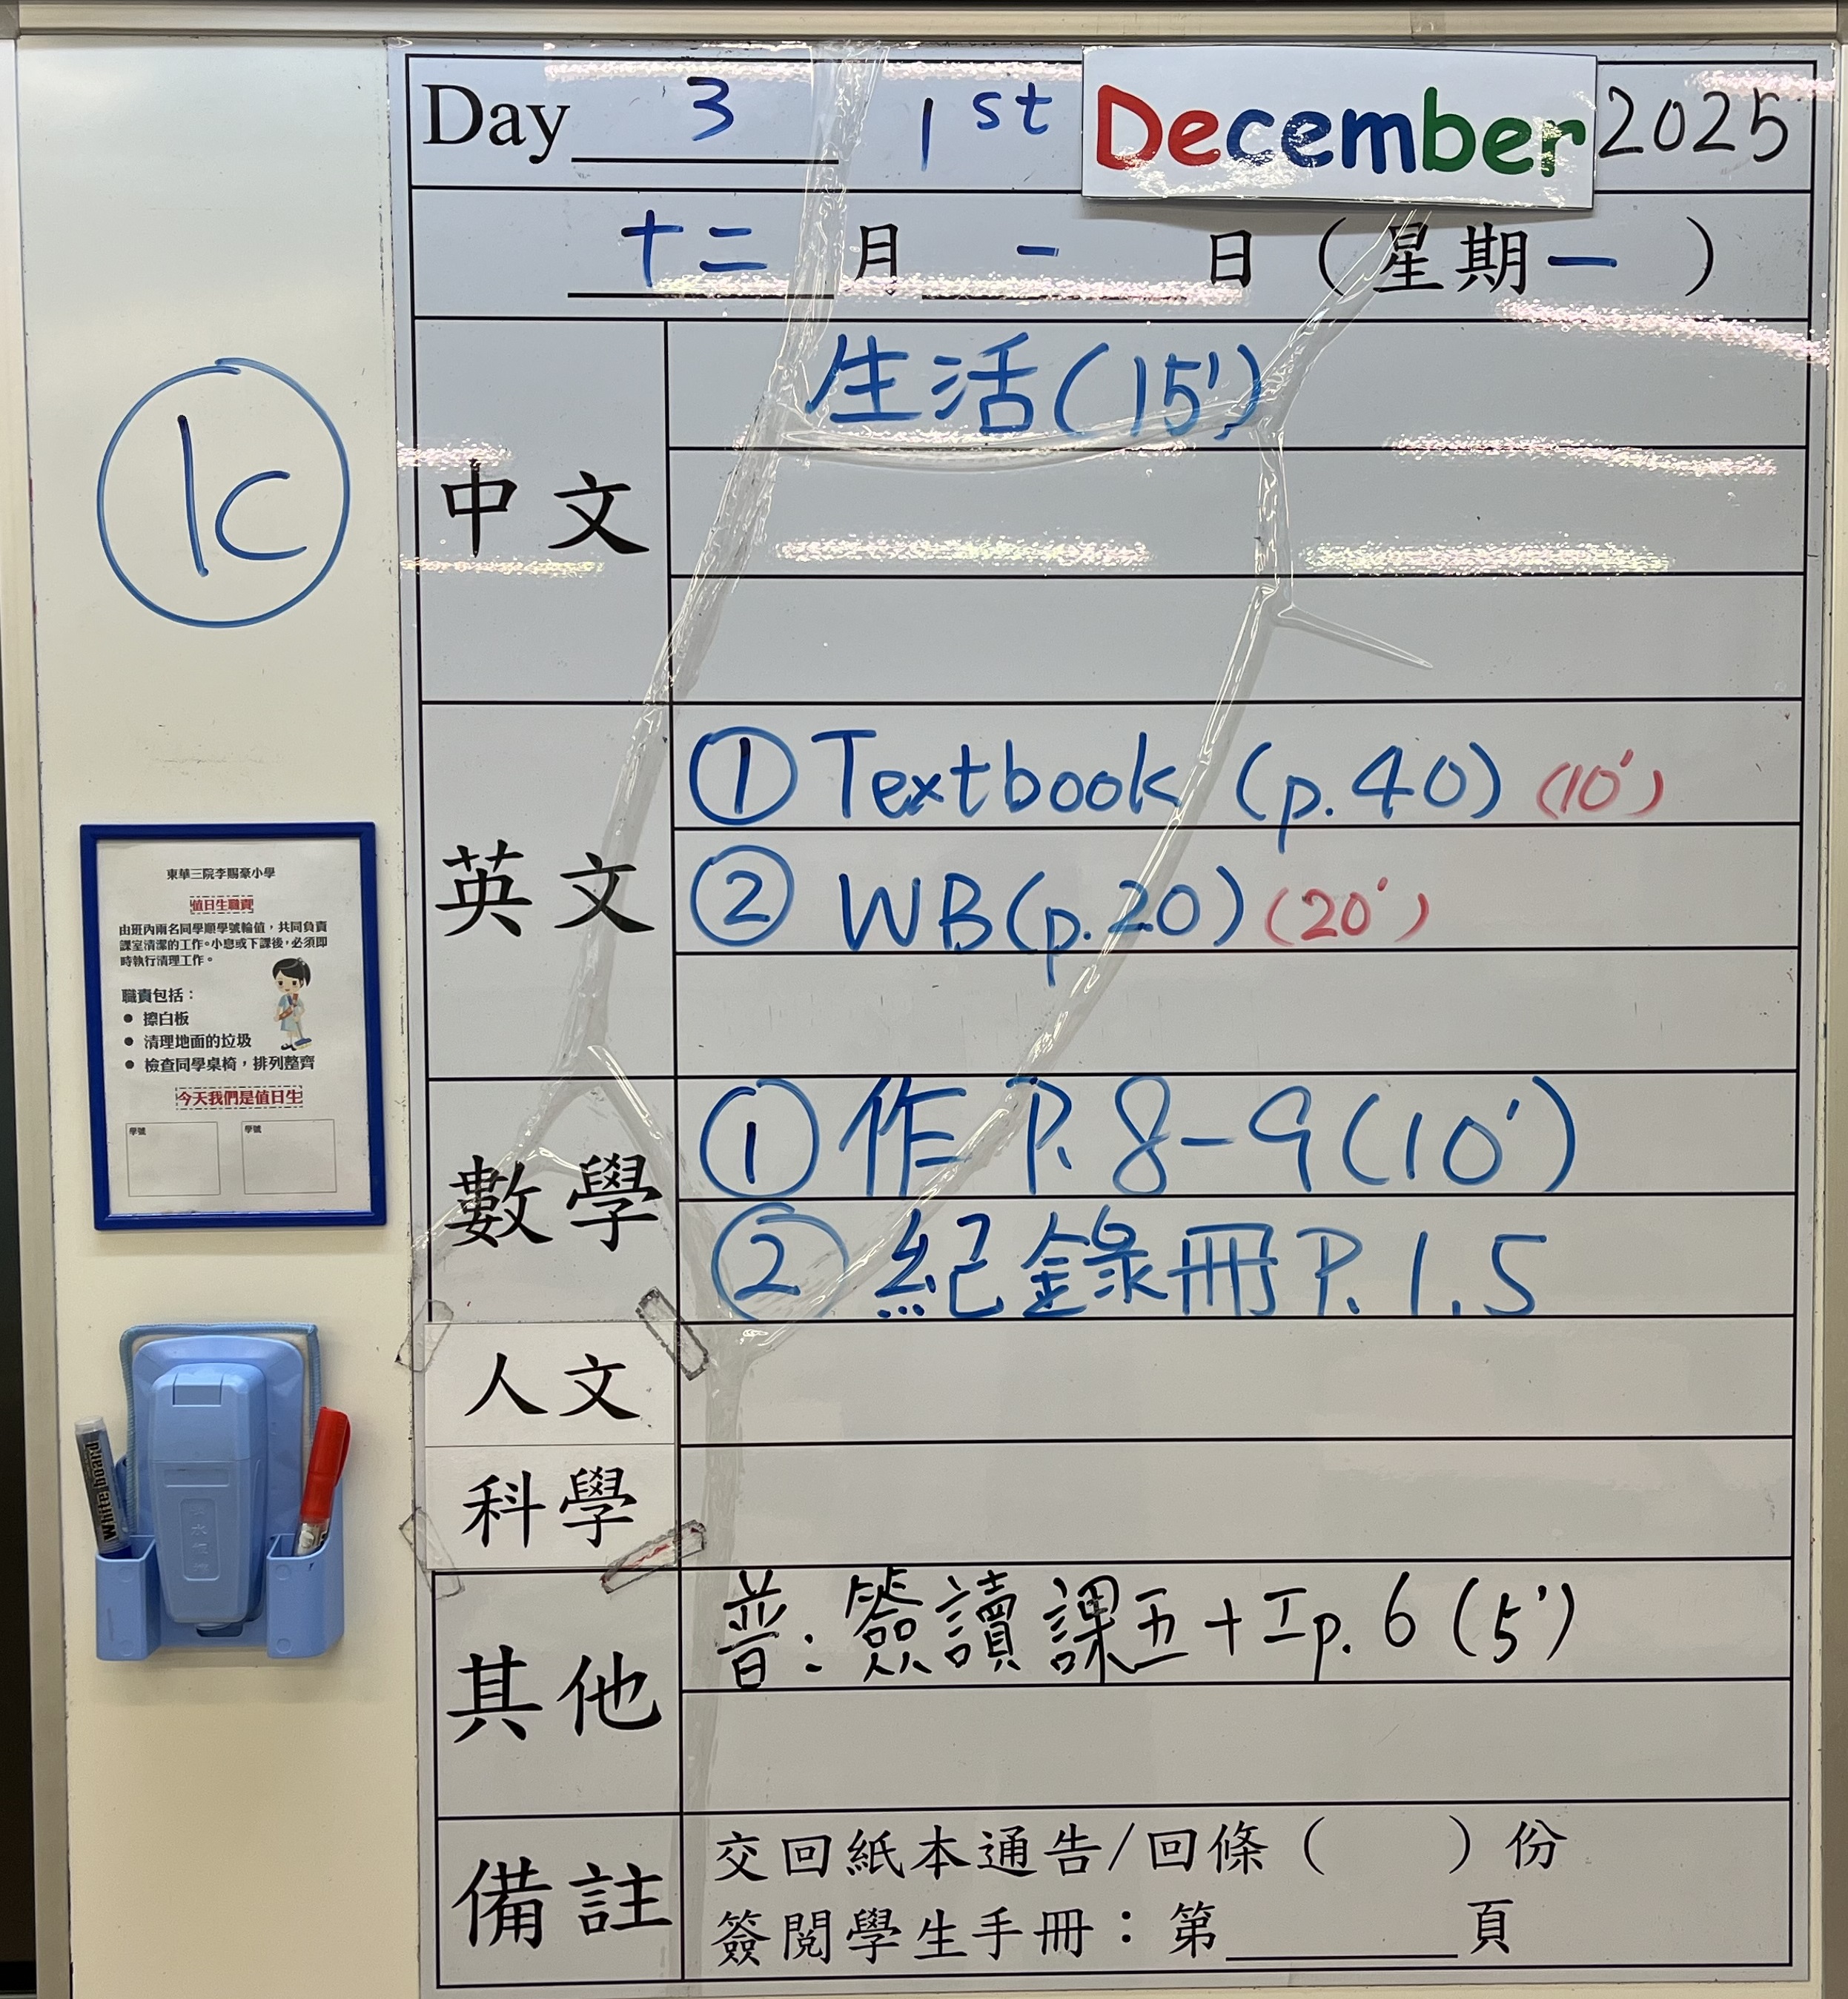 Day 3 1st December 2025
十二月一日（星期一）
1C
中文
生活(15')
英文
① Textbook (p.40) (10')
② WB(p.20) (20')
數學
① 作 P. 8-9 (10')
② 紀錄冊 P. 1, 5
人文
科學
其他
普：簽讀課五+工p. 6 (5')
備註
交回紙本通告/回條（ ）份
簽閱學生手冊：第＿＿＿頁
東華三院李賜豪小學
值日生職責
由班內兩名同學順學號輪值，共同負責
課室清潔的工作。小息或下課後，必須即
時執行清理工作。
職責包括：
● 擦白板
● 清理地面的垃圾
● 檢查同學桌椅，排列整齊
今天我們是值日生
學號 學號
White board